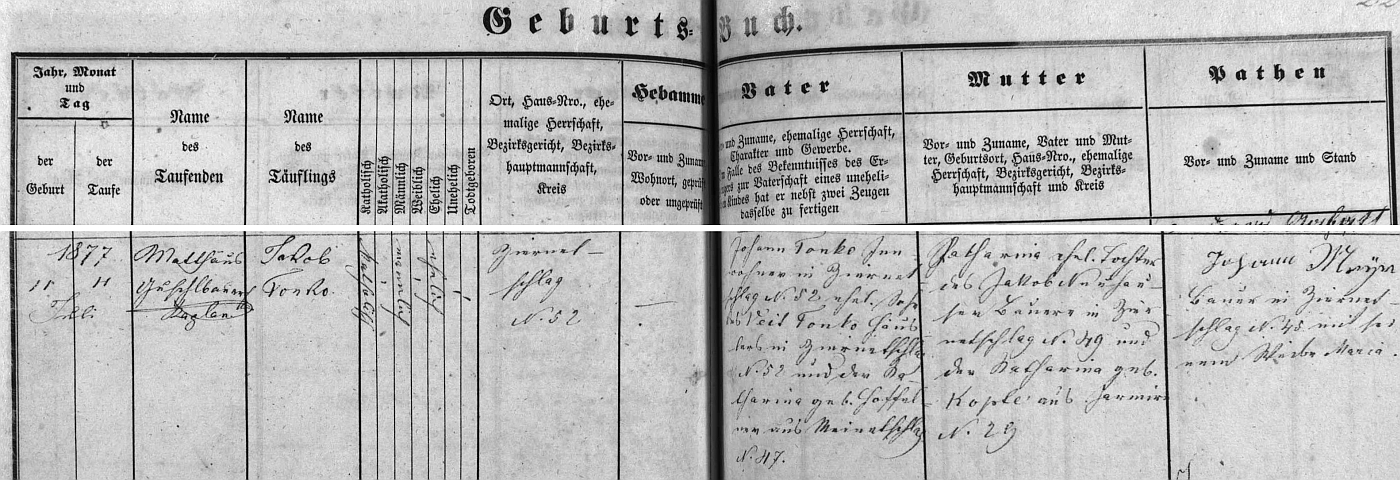 Geburts-Buch.
Jahr, Monat
und
Tag
der
Geburt
der
Taufe
Name
des
Taufenden
Name
des
Täuflings
Katholisch
Akatholisch
Männlich
Weiblich
Ehelich
Unehelich
Todtgeboren
Ort, Haus-Nro., ehe-
malige Herrschaft,
Bezirksgericht, Bezirks-
hauptmannschaft,
Kreis
Hebamme
Vor- und Zuname
Wohnort, geprüft
oder ungeprüft
Vater
und Zuname, ehemalige Herrschaft,
Charakter und Gewerbe.
Falle des Bekenntnisses des Er-
zur Vaterschaft eines uneheli-
Kindes hat er nebst zwei Zeugen
dasselbe zu fertigen
Mutter
Vor- und Zuname, Vater und Mut-
ter, Geburtsort, Haus-Nro., ehemalige
Herrschaft, Bezirksgericht, Bezirks-
hauptmannschaft und Kreis
Pathen
Vor- und Zuname und Stand
1877
11 11
Juli
Matthäus
Guschlbauer
Kaplan
Jakob
Tonko
katholisch
männlich
ehelich
Ziernet-
schlag
N. 52
Johann Tonko Inn
wohner in Ziernet
schlag N. 52 ehel. Sohn
des Veit Tonko Häus
lers in Ziernetschlag
N. 52 und der Ka-
tharina geb. Hoffel-
ner aus Meinetschlag
N. 47.
Katharina ehel. Tochter
des Jakob Neuhau-
ser Bauers in Zier
netschlag N. 49 und
der Katharina geb.
Kople aus Jarmirn
N. 29
Johann
Bauer in Ziernet
schlag N. 45 mit sei
nem Weibe Maria.